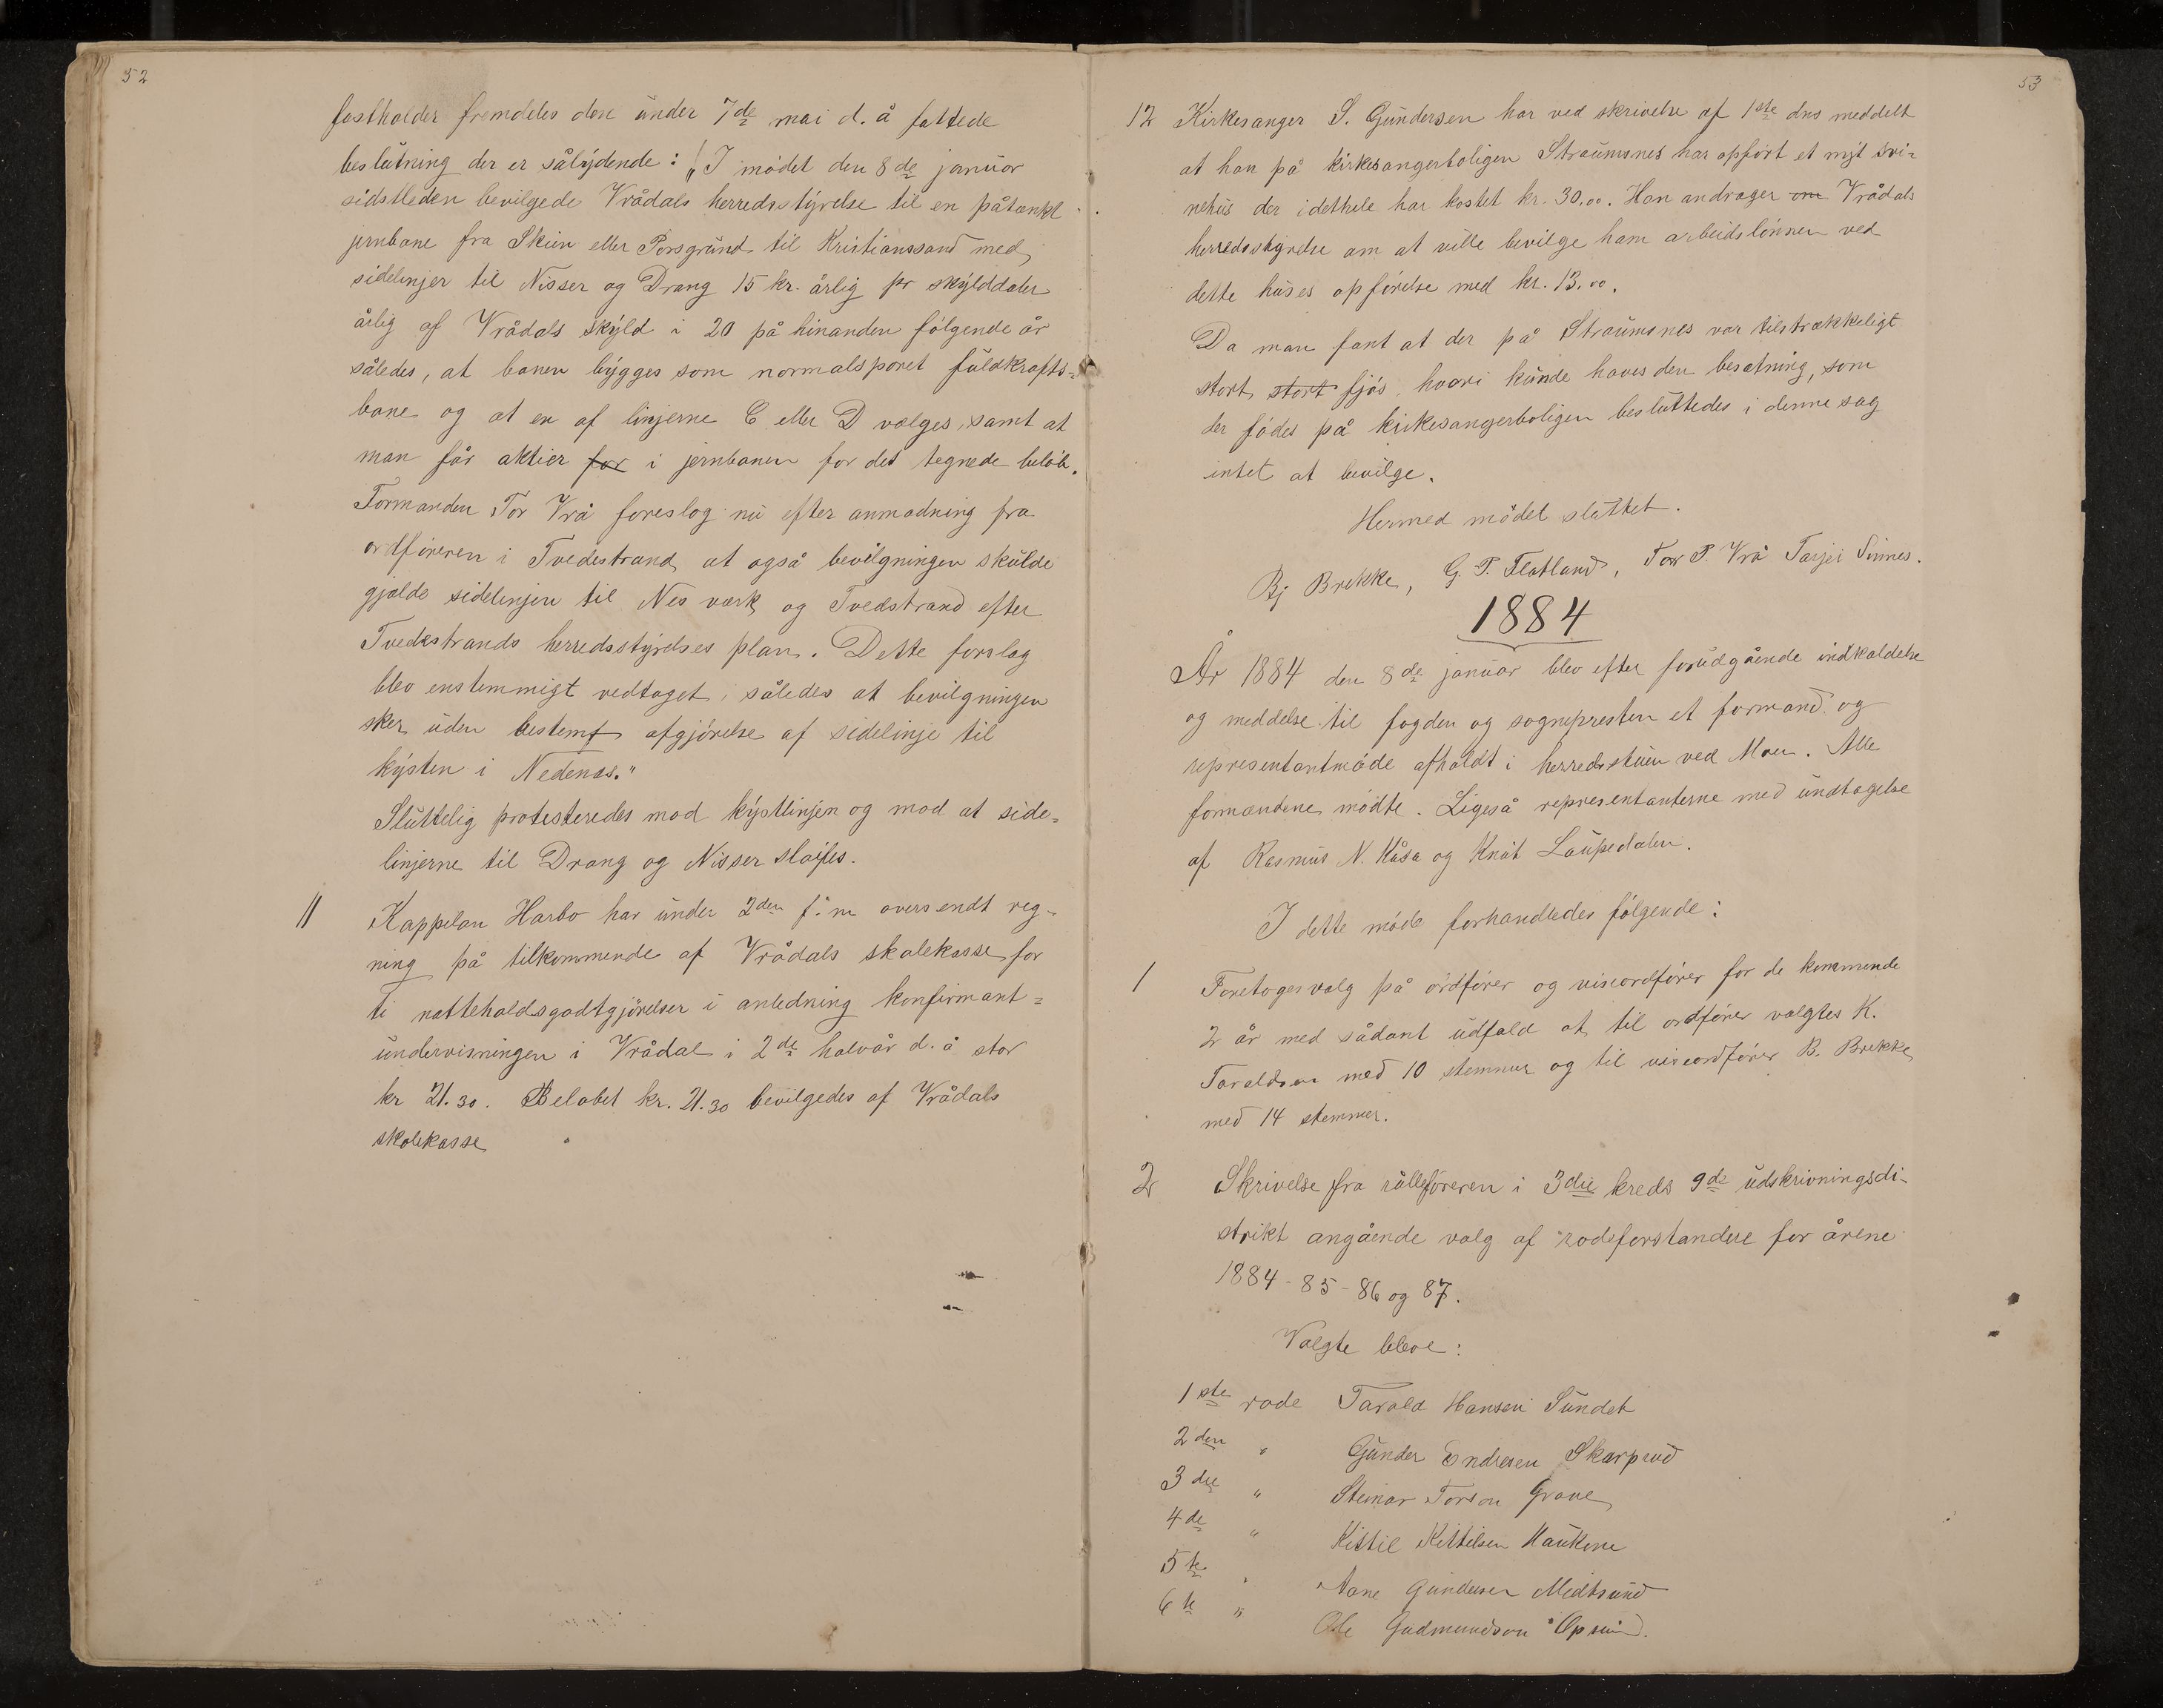 52
fastholder fremdeles den under 7de mai d. å fattede
beslutning der er sålydende: „I mödet den 8de januar
sidstleden bevilgede Vrådals herredsstyrelse til en påtænkt
jernbane fra Skien eller Porsgrund til Kristianssand med
sidelinjer til Nisser og Drang 15 kr. årlig pr skylddaler
årlig af Vrådals skyld i 20 på hinanden fölgende år
således, at banen bygges som normalsporet fuldkrafts=
bane og at en af linjerne C eller D vælges, samt at
man får aktier for i jernbanen for det tegnede belöb.
Formanden Tor Vrå foreslog nu efter anmodning fra
ordföreren i Tvedestrand at også bevilgningen skulde
gjælde sidelinjen til Nes værk og Tvedstrand efter
Tvedestrands herredsstyrelses plan. Dette forslag
blev enstemmigt vedtaget, således at bevilgningen
sker uden bestemt afgjörelse af sidelinje til
kysten i Nedenæs."
Sluttelig protesteredes mod kystlinjen og mod at side=
linjerne til Drang og Nisser sløifes.
11 Kappelan Harbo har under 2den f. m oversendt reg-
ning på tilkommende af Vrådals skolekasse for
ti natteholdsgodtgjörelser i anledning konfirmant=
undervisningen i Vrådal i 2de halvår d. å stor
kr 21.30. Beløbet kr. 21.30 bevilgedes af Vrådals
skolekasse
53
12 Kirkesanger S. Gundersen har ved skrivelse af 1ste dns meddelt
at han på kirkesangerboligen Straumsnes har opfört et nyt svi=
nehus der idethele har kostet kr. 30.00. Han andrager om Vrådals
herredsstyrelse om at ville bevilge ham arbeidslönnen ved
dette huses opförelse med kr. 13.00.
Da man fant at der på Straumsnes var tilstrækkeligt
stort stort fjös hvori kunde haves den besætning, som
der födes på kirkesangerboligen besluttedes i denne sag
intet at bevilge.
Hermed mödet sluttet.
Bj Brekke, G. T. Flatland, Tor P. Vrå Tarjei Sinnes.
1884
År 1884 den 8de januar blev efter forudgående indkaldelse
og meddelse til fogden og sognepresten et formand og
representantmöde afholdt i herredsstuen ved Moen. Alle
formændene mödte. Ligeså representanterne med undtagelse
af Rasmus N. Kåsa og Knut Laupedalen.
I dette möde forhandledes fölgende:
1 Foretoges valg på ordförer og viseordförer for de kommende
2 år med sådant udfald at til ordförer valgtes K.
Taraldsen med 10 stemmer og til viseordförer B. Brekke
med 14 stemmer.
2 Skrivelse fra rulleföreren i 3die kreds 9de udskrivningsdi-
strikt angående valg af rodeforstandere for årene
1884-85-86 og 87.
Valgte bleve:
1ste rode Tarald Hansen Sundet
2den " Gunder Endresen Skarprud
3die " Steinar Torson Grave
4de " Kittil Kittilsen Haukom
5te " Aane Gundersen Midtsund
6te " Ole Gudmundson Opsund.